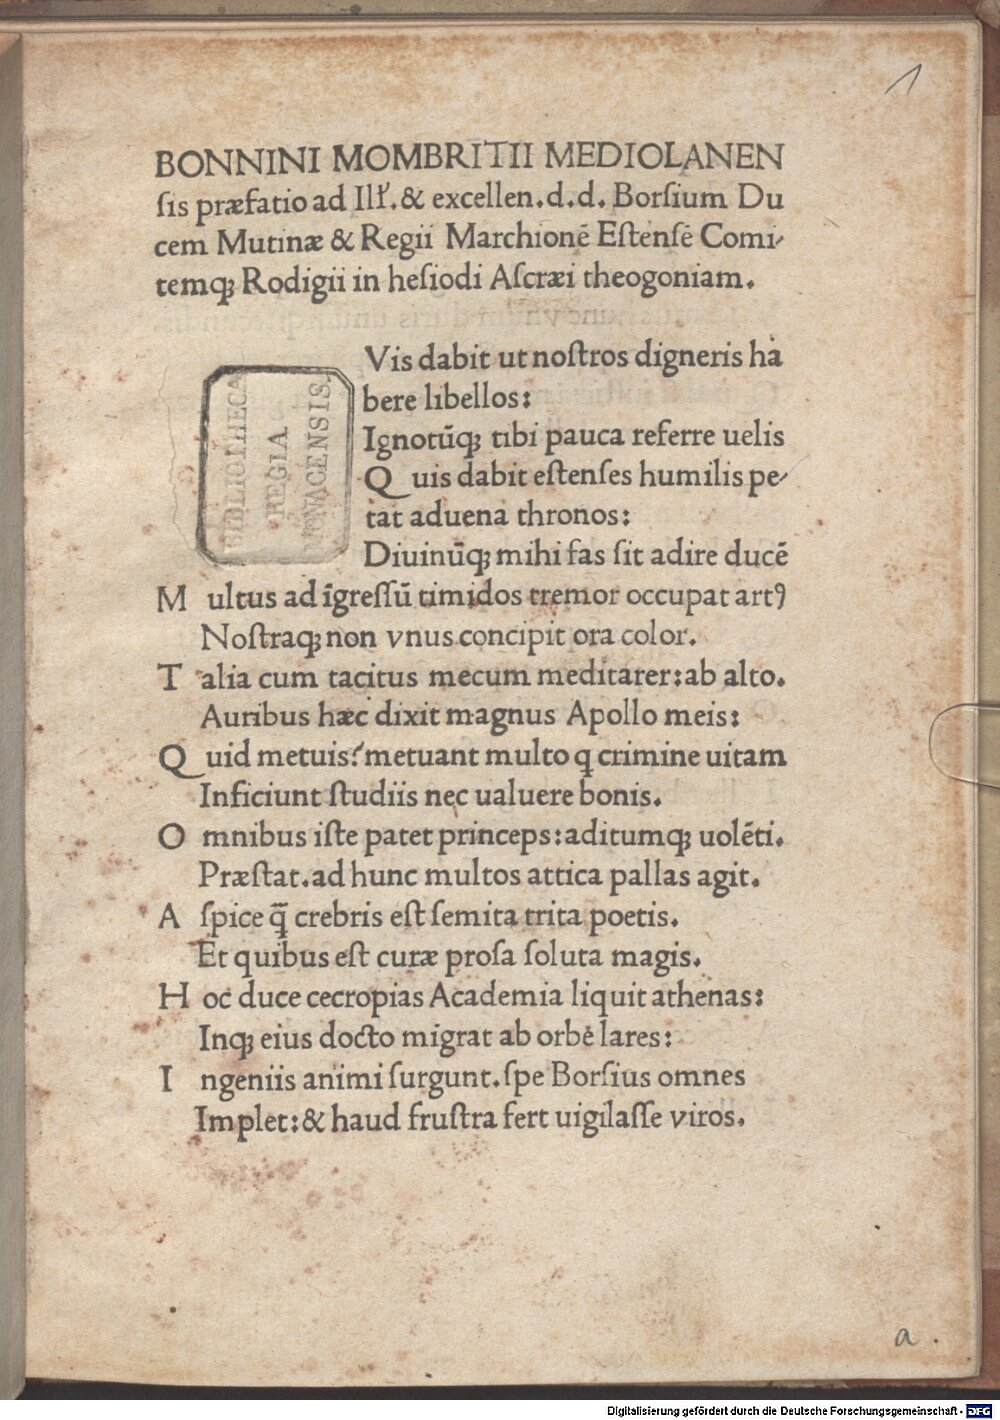 1
BONNINI MOMBRITII MEDIOLANEN
ſis præfatio ad Ill̃.& excellen.d.d. Borſium Du
cem Mutinæ & Regii Marchionē Eſtenſē Comi-
temqꝫ Rodigii in heſiodi Aſcræi theogoniam.
Vis dabit ut noſtros digneris ha
bere libellos:
Ignotūqꝫ tibi pauca referre uelis
Quis dabit eſtenſes humilis pe-
tat aduena thronos:
Diuinūqꝫ mihi fas ſit adire ducē
Multus ad īgreſſū timidos tremor occupat artꝰ
Noſtraqꝫ non vnus concipit ora color.
Talia cum tacitus mecum meditarer:ab alto.
Auribus hæc dixit magnus Apollo meis:
Quid metuis? metuant multo q crimine uitam
Inficiunt ſtudiis nec ualuere bonis.
Omnibus iſte patet princeps:aditumqꝫ uolēti.
Præſtat.ad hunc multos attica pallas agit.
Aſpice q̄ crebris eſt ſemita trita poetis.
Et quibus eſt curæ proſa ſoluta magis.
Hoc duce cecropias Academia liquit athenas:
Inqꝫ eius docto migrat ab orbe lares:
Ingeniis animi ſurgunt.ſpe Borſius omnes
Implet:& haud fruſtra fert uigilaſſe viros.
BIBLIOTHECA
REGIA
MONACENSIS.
a.
Digitalisierung gefördert durch die Deutsche Forschungsgemeinschaft - DFG